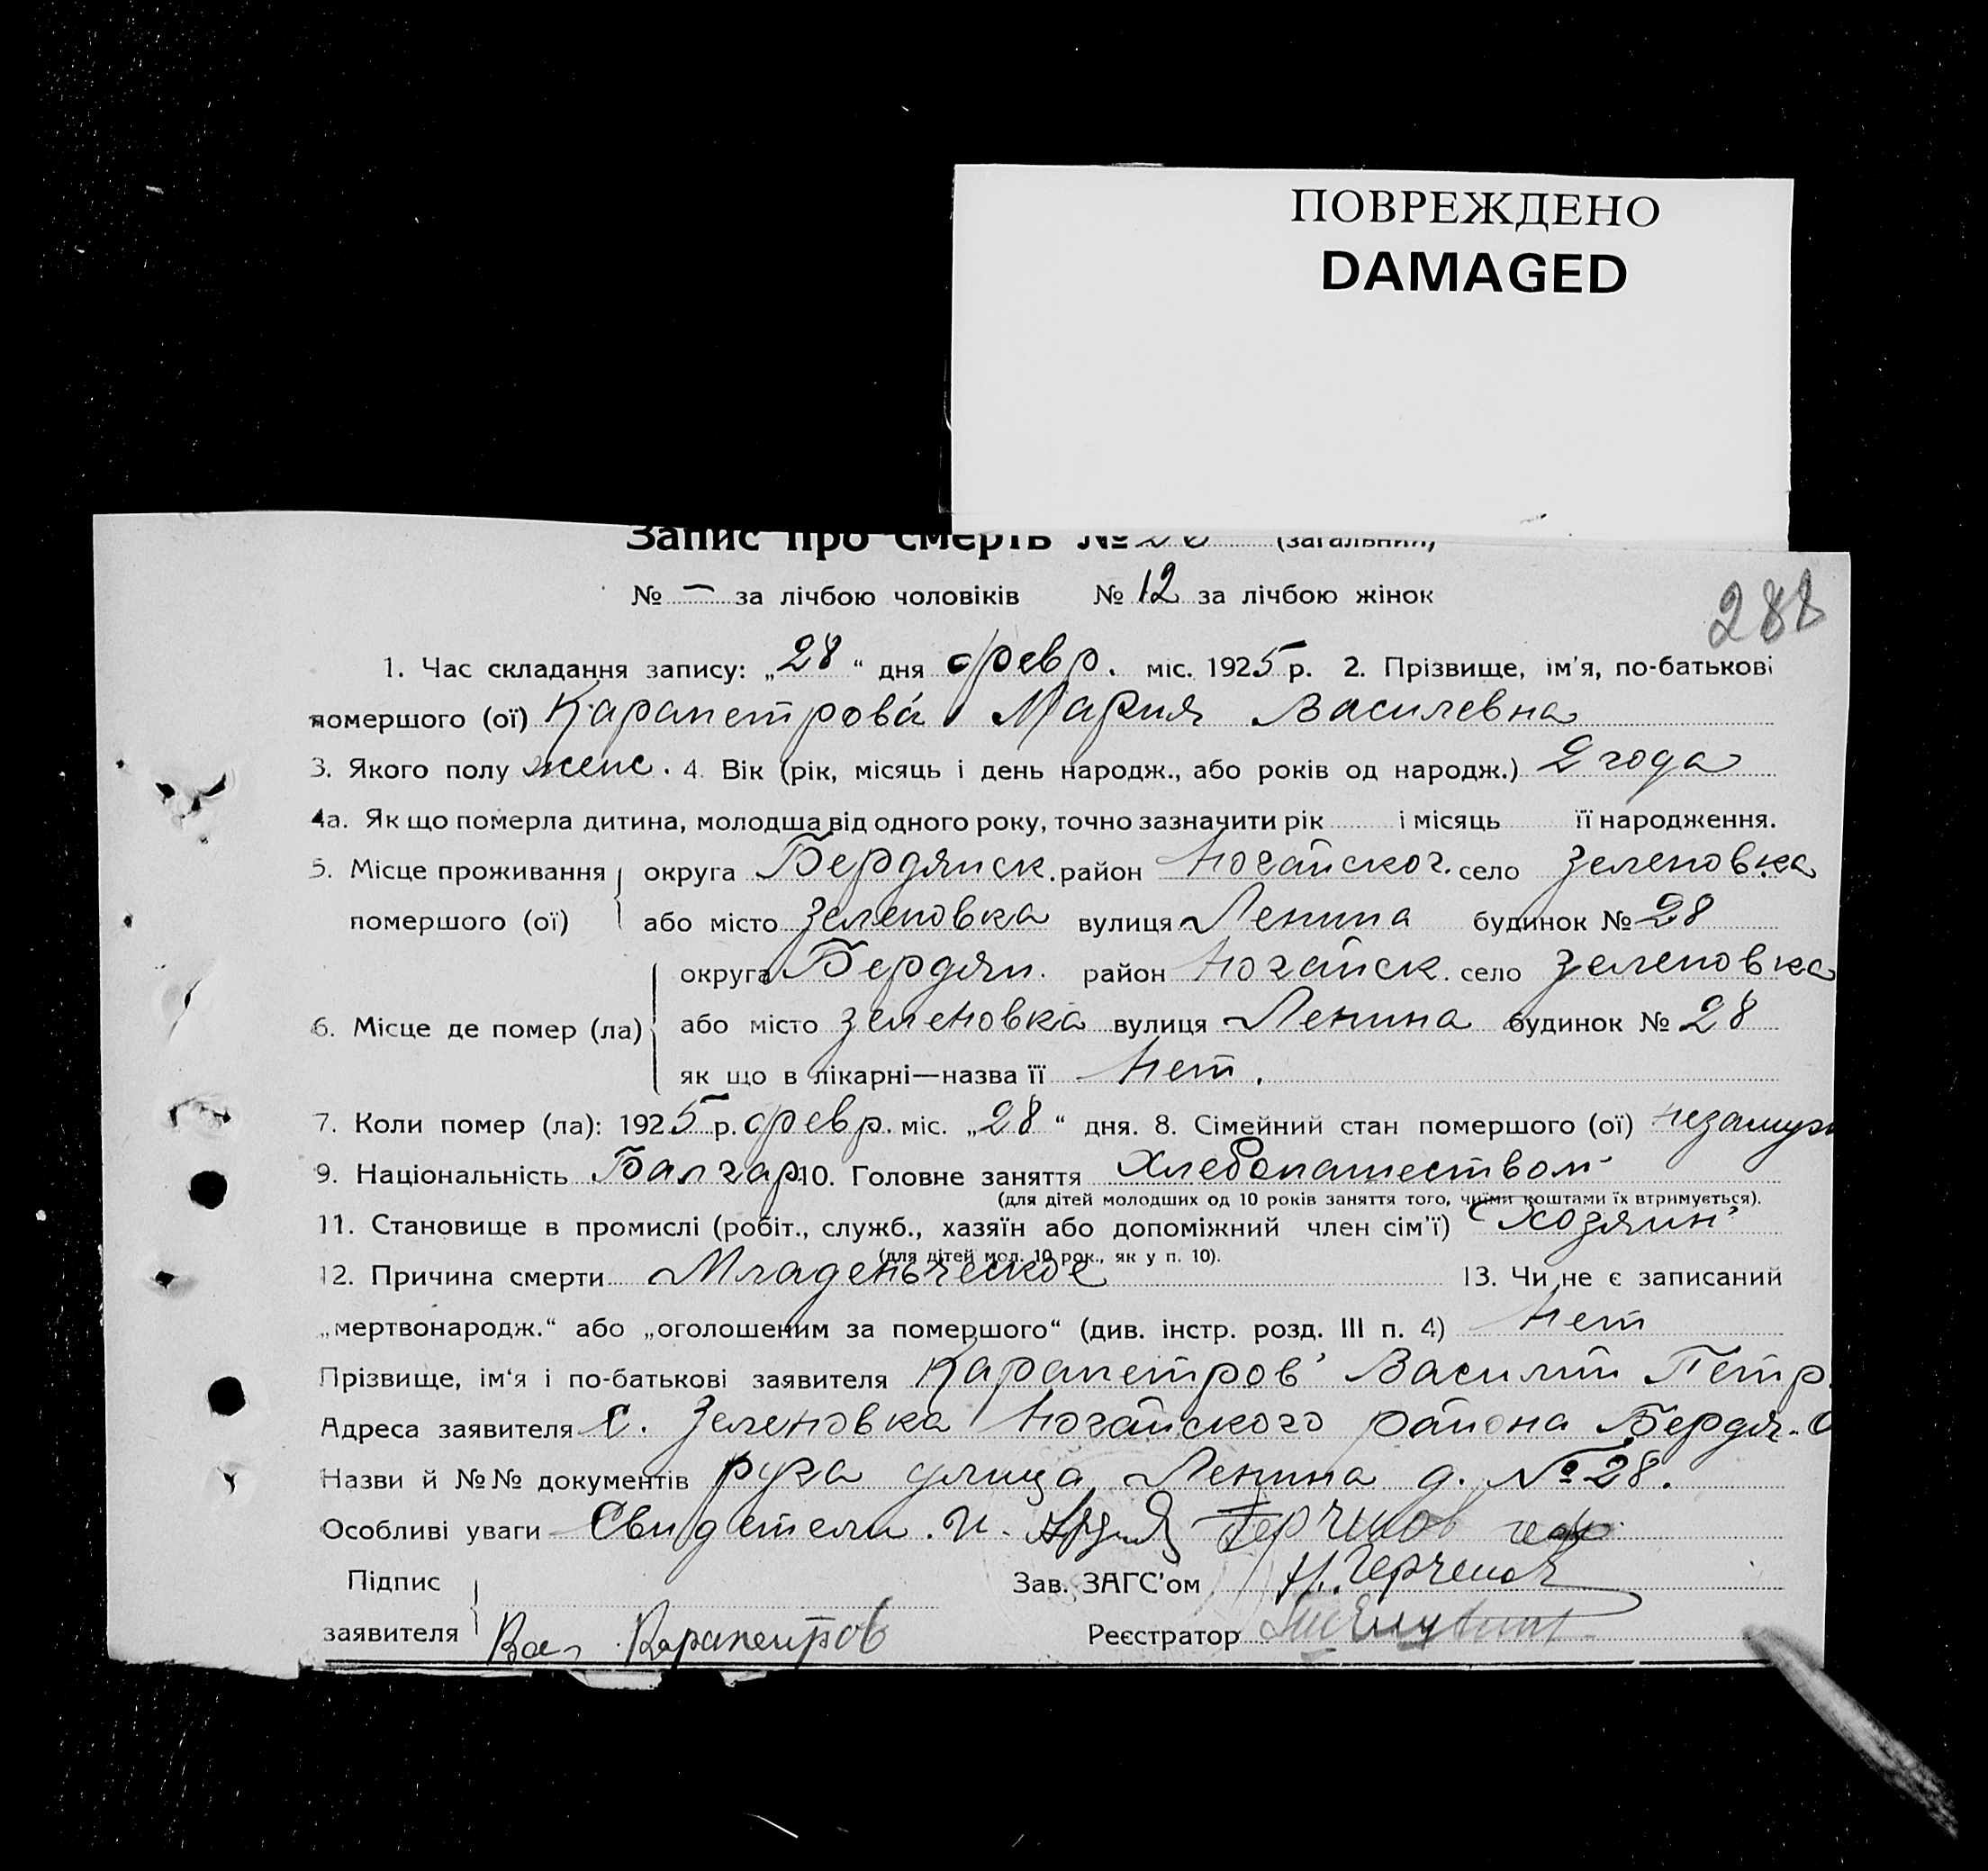 ПОВРЕЖДЕНО
DAMAGED
Запис про смерть № (загальний)
№ — за лічбою чоловіків № 12 за лічбою жінок
288
1. Час складання запису: „28“ дня февр. міс. 1925 р. 2. Прізвище, ім'я, по-батькові
помершого (ої) Карапетрова Мария Василевна
3. Якого полу женс. 4. Вік (рік, місяць і день народж., або років од народж.) 2 года
4а. Як що померла дитина, молодша від одного року, точно зазначити рік і місяць її народження.
5. Місце проживання округа Бердянск. район Ногайског. село Зеленовка
помершого (ої) або місто Зеленовка вулиця Ленина будинок № 28
округа Бердян. район Ногайск. село Зеленовка
6. Місце де помер (ла) або місто Зеленовка вулиця Ленина будинок № 28
як що в лікарні—назва її Нет.
7. Коли помер (ла): 1925 р. февр. міс. „28“ дня. 8. Сімейний стан помершого (ої) незамуж
9. Національність Балгар 10. Головне заняття Хлебопашеством
(для дітей молодших од 10 років заняття того, чиїми коштами їх втримується).
11. Становище в промислі (робіт., служб., хазяїн або допоміжний член сім'ї) Хозяин
(для дітей мол. 10 рок., як у п. 10).
12. Причина смерти Младенческое 13. Чи не є записаний
„мертвонародж.“ або „оголошеним за помершого“ (див. інстр. розд. III п. 4) Нет
Прізвище, ім'я і по-батькові заявителя Карапетров Василий Петр.
Адреса заявителя С. Зеленовка Ногайского района Бердя. О
Назви й №№ документів руга улица Ленина д. № 28.
Особливі уваги Свидетели. И.
Підпис Зав. ЗАГС'ом Н. Герченов
заявителя Вас. Карапетров Реєстратор